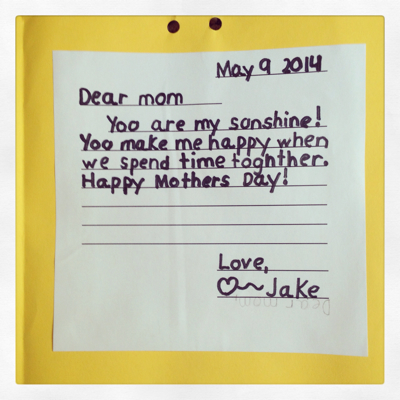 May 9 2014
Dear mom
You are my sonshine!
You make me happy when
we spend time tognther.
Happy Mothers Day!
Love,
♡~ Jake